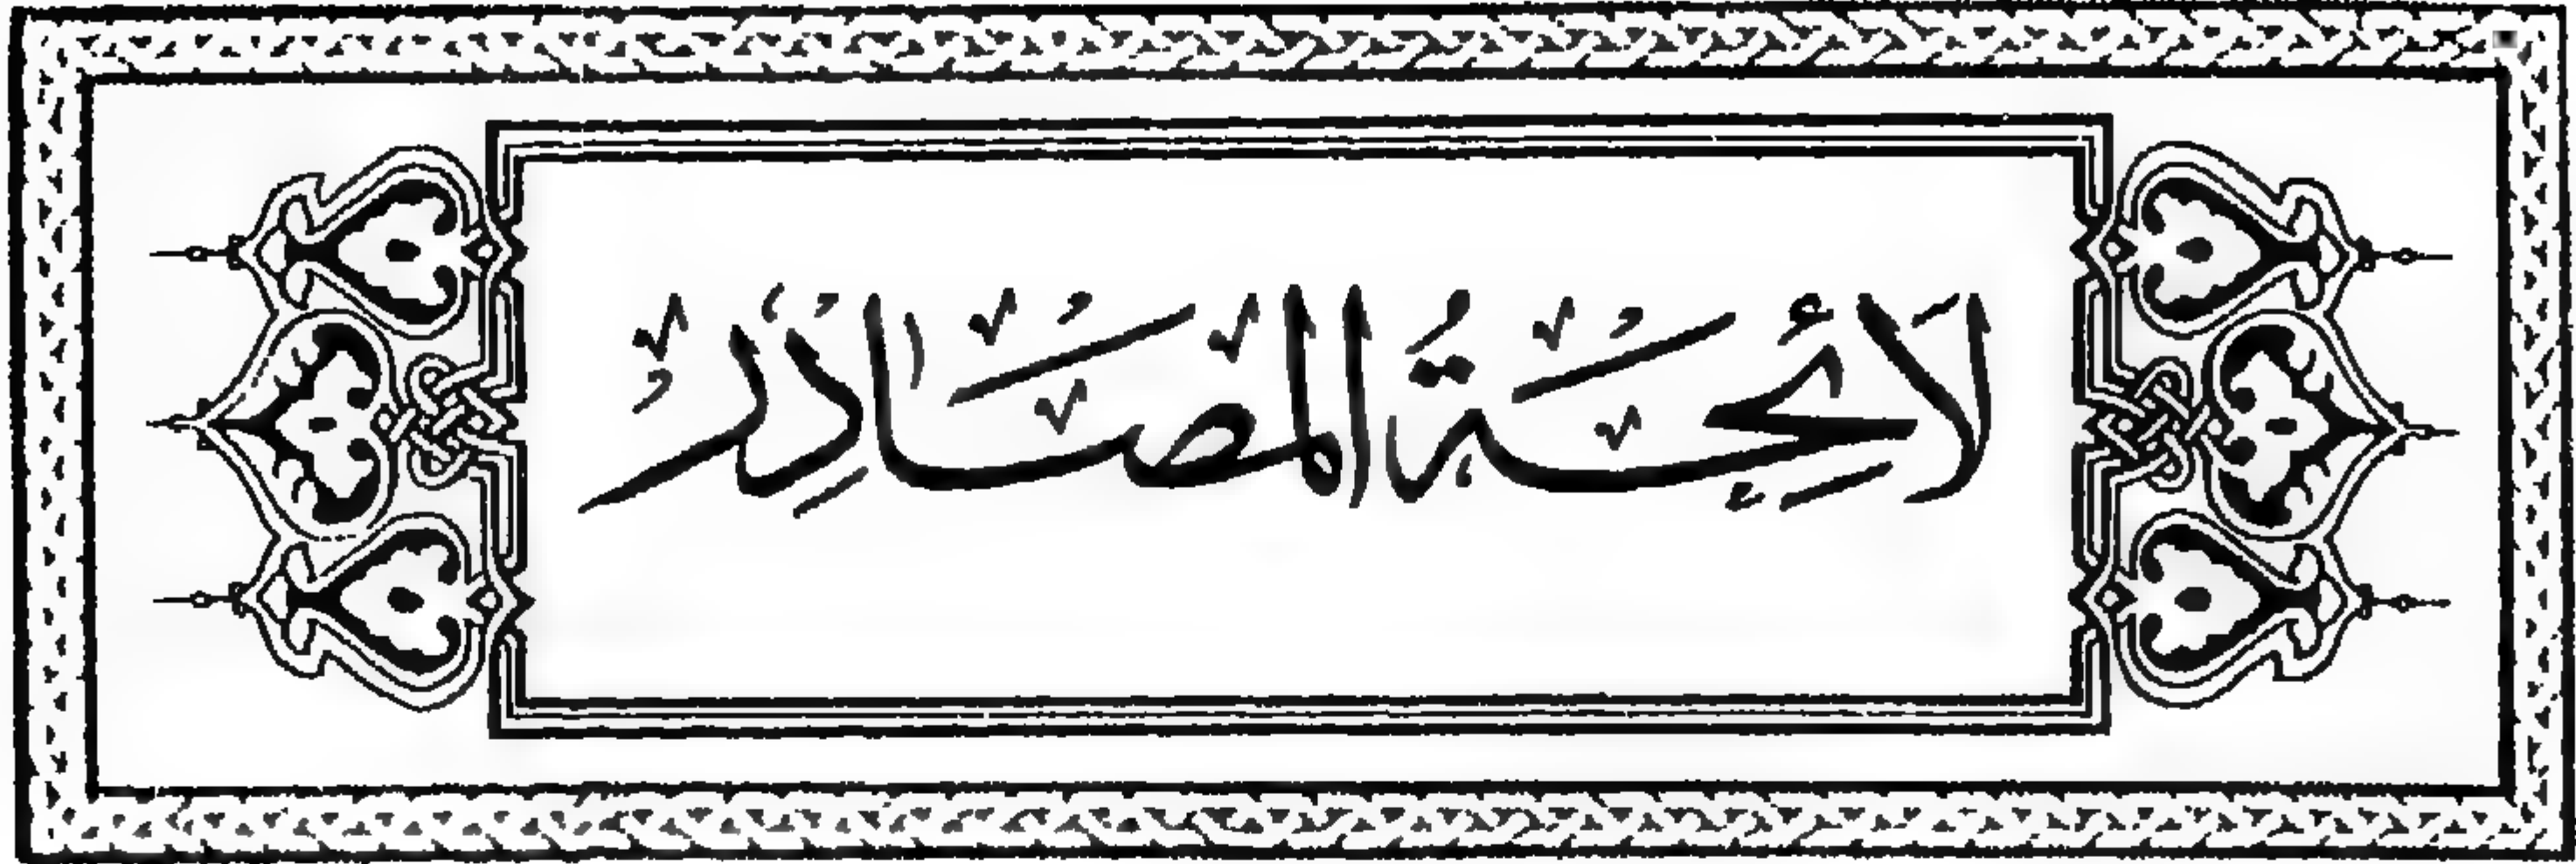 لَائِحَةُ الْمَصَادِرُ